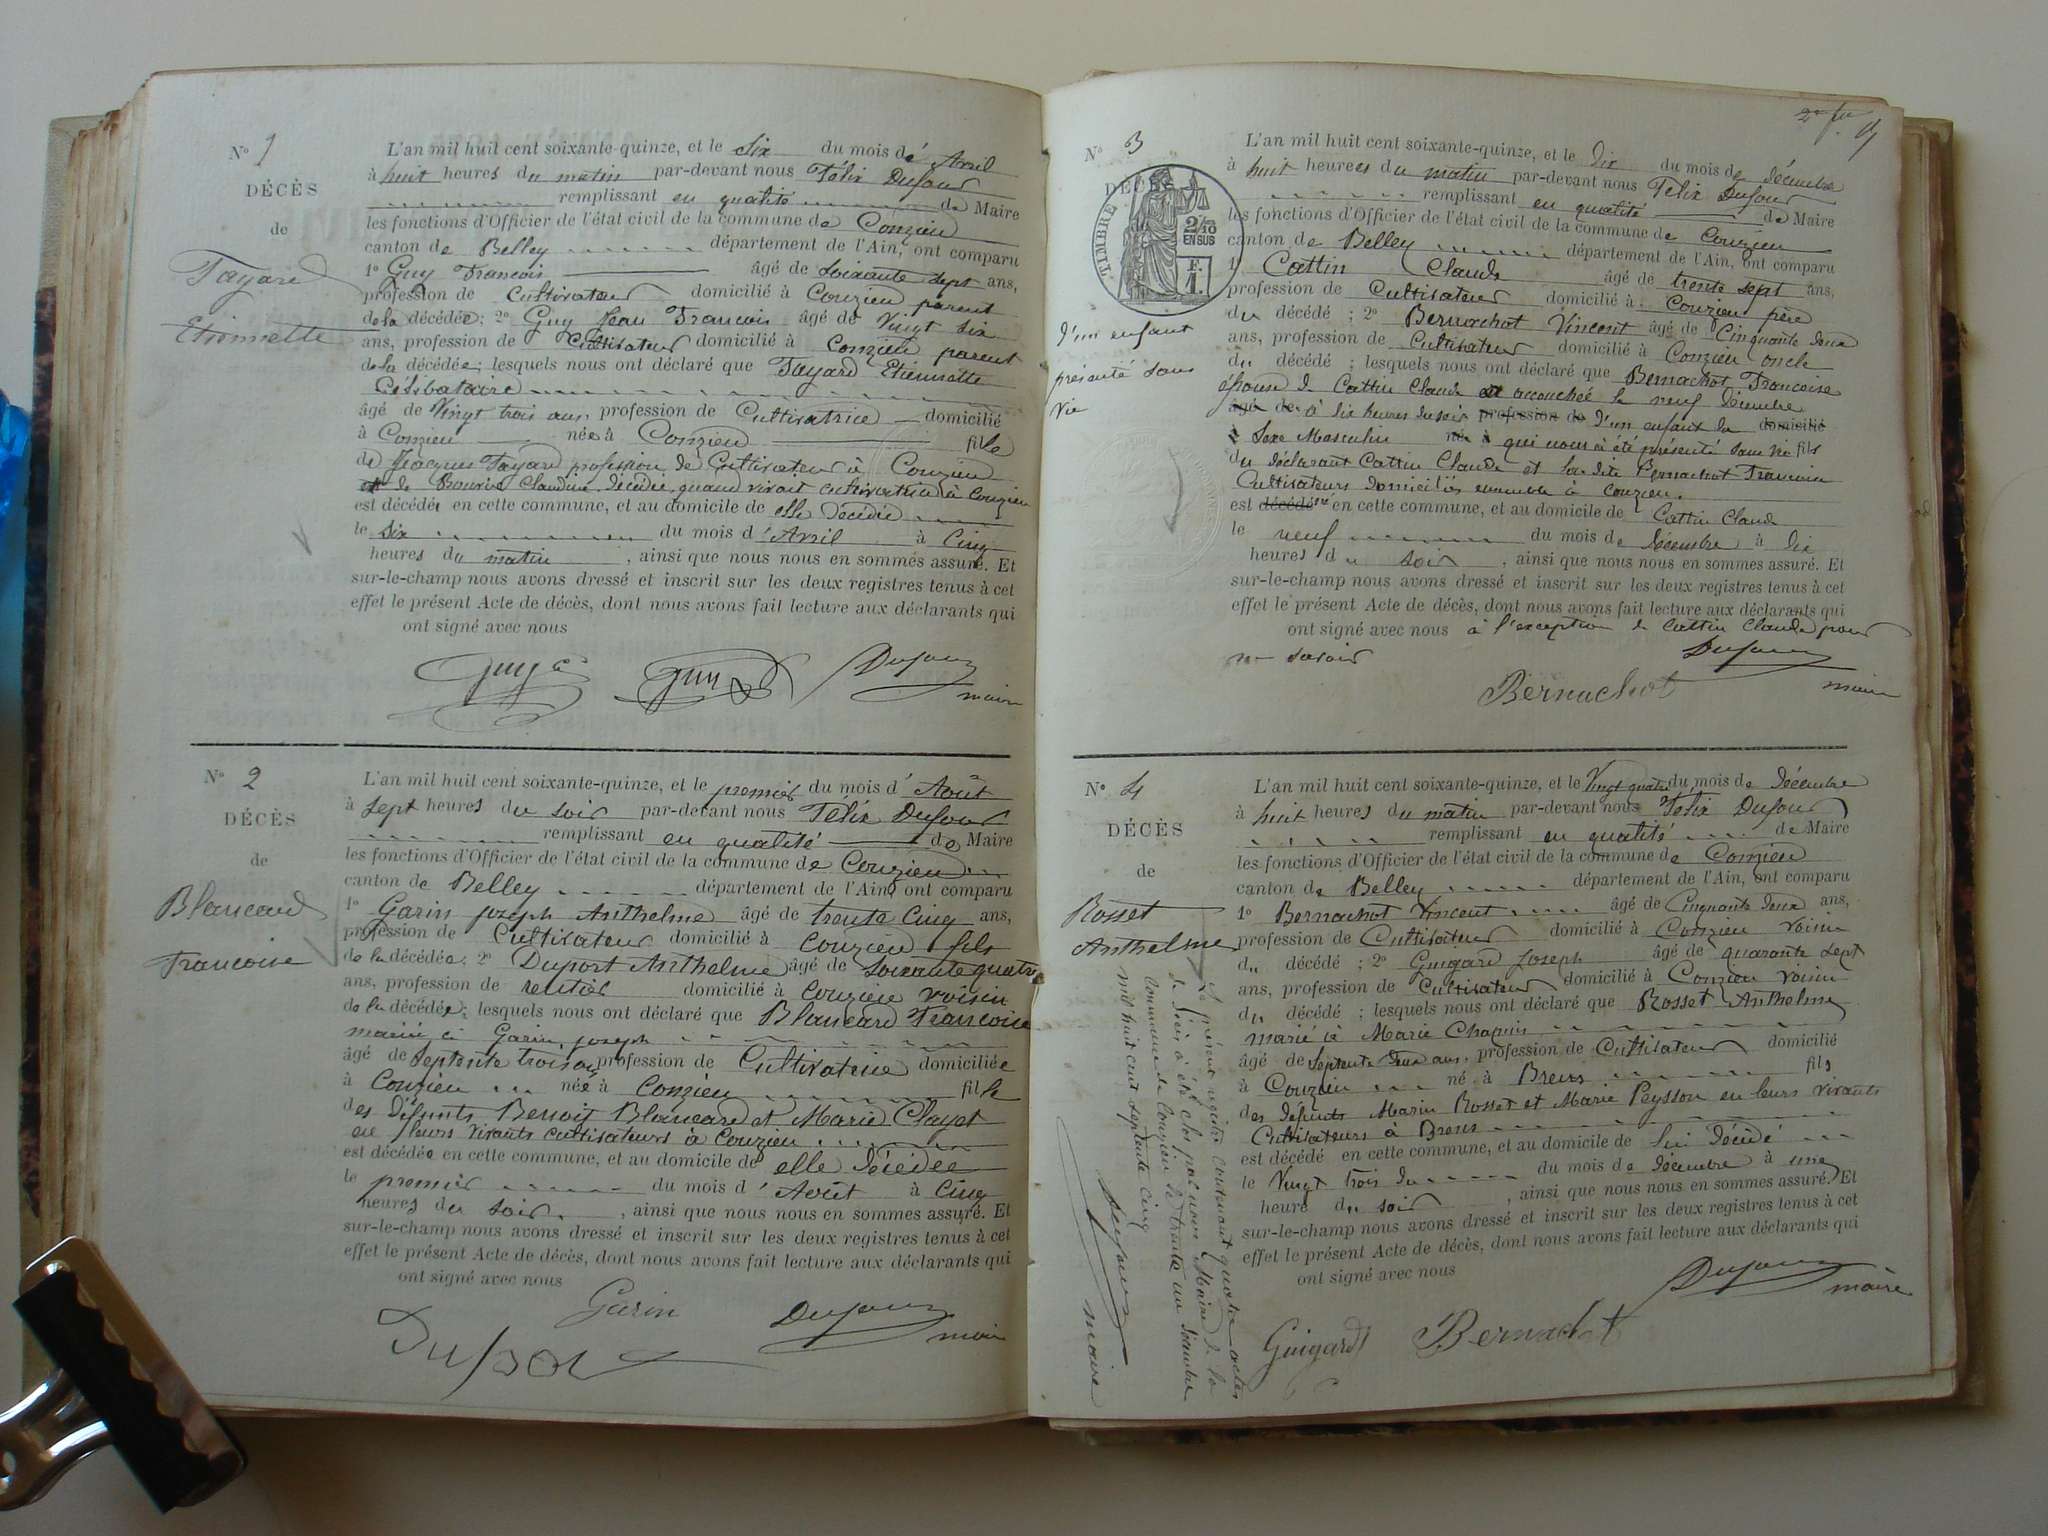 N° 1
DÉCÈS
de
Tayard
Etiennette
L'an mil huit cent soixante-quinze, et le six du mois d' Avril
à huit heures du matin par-devant nous Félix Dufour
remplissant en qualité de Maire
les fonctions d'Officier de l'état civil de la commune de Conzieu
canton de Belley département de l'Ain, ont comparu
1° Guy François âgé de soixante sept ans,
profession de Cultivateur domicilié à Conzieu parent
de la décédée; 2° Guy Jean François âgé de Vingt six
ans, profession de Cultivateur domicilié à Conzieu parent
de la décédée; lesquels nous ont déclaré que Tayard Etiennette
Célibataire
âgé de Vingt trois ans, profession de Cultivatrice domicilié
à Conzieu née à Conzieu fille
de Jacques Tayard profession de Cultivateur à Conzieu
et de Claudine décédée quand vivait cultivatrice à Conzieu
est décédée en cette commune, et au domicile de elle décédée
le six du mois d' Avril à Cinq
heures du matin, ainsi que nous nous en sommes assuré. Et
sur-le-champ nous avons dressé et inscrit sur les deux registres tenus à cet
effet le présent Acte de décès, dont nous avons fait lecture aux déclarants qui
ont signé avec nous
Guy Guy Dufour
maire
N° 2
DÉCÈS
de
Blancard
Françoise
L'an mil huit cent soixante-quinze, et le premier du mois d' Août
à sept heures du soir par-devant nous Félix Dufour
remplissant en qualité de Maire
les fonctions d'Officier de l'état civil de la commune de Conzieu
canton de Belley département de l'Ain, ont comparu
1° Garin Joseph Anthelme âgé de trente Cinq ans,
profession de Cultivateur domicilié à Conzieu fils
de la décédée; 2° Duport Anthelme âgé de soixante quatre
ans, profession de rentier domicilié à Conzieu voisin
de la décédée; lesquels nous ont déclaré que Blancard Françoise
mariée à Garin joseph
âgé de septente trois ans profession de Cultivatrice domiciliée
à Conzieu née à Conzieu fille
des défunts Benoit Blancard et Marie Clayet
en leurs vivants cultivateurs à Conzieu
est décédée en cette commune, et au domicile de elle décédée
le premier du mois d' Août à Cinq
heures du soir, ainsi que nous nous en sommes assuré. Et
sur-le-champ nous avons dressé et inscrit sur les deux registres tenus à cet
effet le présent Acte de décès, dont nous avons fait lecture aux déclarants qui
ont signé avec nous
Garin Dufour
Duport maire
N° 3
TIMBRE
2/10
EN SUS
F.
1.
d'un enfant
présenté sans
vie
L'an mil huit cent soixante-quinze, et le dix du mois de décembre
à huit heures du matin par-devant nous Félix Dufour
remplissant en qualité de Maire
les fonctions d'Officier de l'état civil de la commune de Conzieu
canton de Belley département de l'Ain, ont comparu
1° Cattin Claude âgé de trente sept ans,
profession de Cultivateur domicilié à Conzieu père
du décédé; 2° Bernachot Vincent âgé de Cinquante deux
ans, profession de Cultivateur domicilié à Conzieu oncle
du décédé; lesquels nous ont déclaré que Bernachot Françoise
épouse de Cattin Claude accouchée le neuf Décembre
âgé de à dix heures du soir profession de d'un enfant du domicilié
à Sexe Masculin né à qui nous à été présenté sans vie fils
du déclarant Cattin Claude et la dite Bernachot Françoise
Cultivateurs domiciliés ensemble à Conzieu.
est décédé en cette commune, et au domicile de Cattin Claude
le neuf du mois de décembre à dix
heures du soir, ainsi que nous nous en sommes assuré. Et
sur-le-champ nous avons dressé et inscrit sur les deux registres tenus à cet
effet le présent Acte de décès, dont nous avons fait lecture aux déclarants qui
ont signé avec nous à l'exception de Cattin Claude pour
ne savoir Dufour
Bernachot maire
N° 4
DÉCÈS
de
Rosset
Anthelme
L'an mil huit cent soixante-quinze, et le Vingt quatre du mois de décembre
à huit heures du matin par-devant nous Félix Dufour
remplissant en qualité de Maire
les fonctions d'Officier de l'état civil de la commune de Conzieu
canton de Belley département de l'Ain, ont comparu
1° Bernachot Vincent âgé de Cinquante deux ans,
profession de Cultivateur domicilié à Conzieu voisin
du décédé; 2° Guigard Joseph âgé de quarante sept
ans, profession de Cultivateur domicilié à Conzieu voisin
du décédé; lesquels nous ont déclaré que Rosset Anthelme
marié à Marie Chapuis
âgé de septente deux ans, profession de Cultivateur domicilié
à Conzieu né à Brens fils
des défunts Marin Rosset et Marie Peysson en leurs vivants
Cultivateurs à Brens
est décédé en cette commune, et au domicile de lui décédé
le Vingt trois du du mois de décembre à une
heure du soir, ainsi que nous nous en sommes assuré. Et
sur-le-champ nous avons dressé et inscrit sur les deux registres tenus à cet
effet le présent Acte de décès, dont nous avons fait lecture aux déclarants qui
ont signé avec nous
Dufour
maire
Guigard Bernachot
Le présent registre contenant quatre actes
de décès à été clos par nous Maire de la
Commune de Conzieu le trente un décembre
mil huit cent septante cinq
Dufour maire